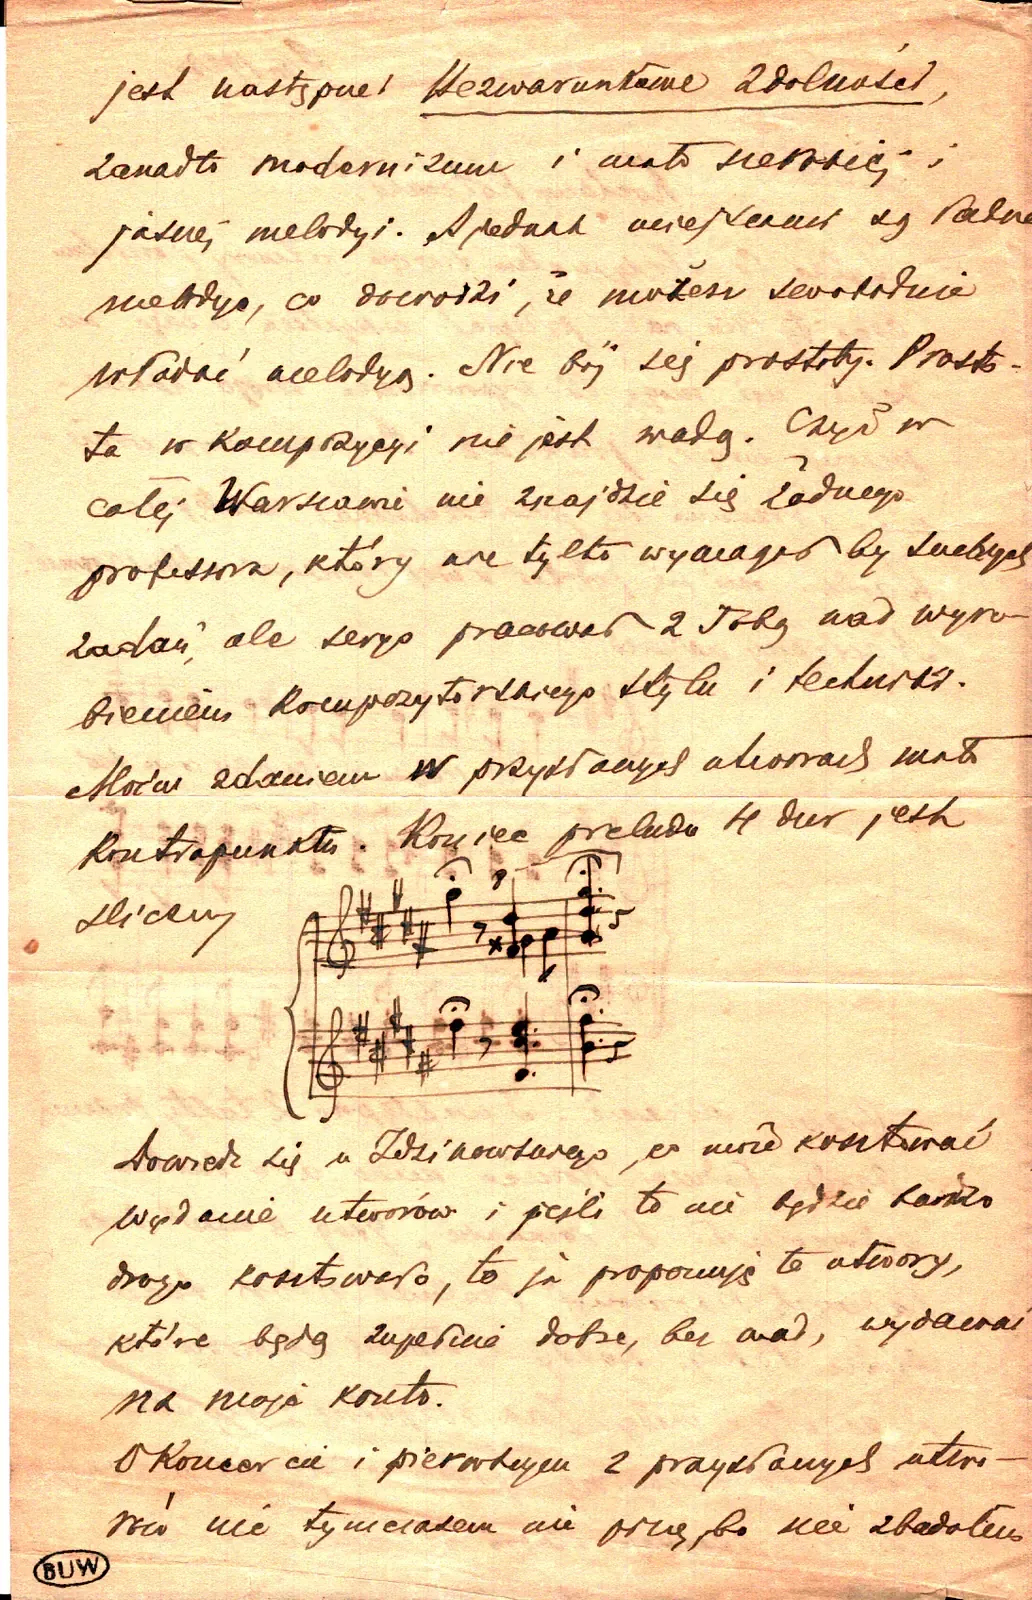 jest następne: Bezwarunkowe zdolności,
zanadto modernizmu i mało szerokiej i
jasnej melodyi. A jednak miejscami są ładne
melodye, co dowodzi, że możesz swobodnie
władać melodyą. Nie bój się prostoty. Prosto-
ta w kompozycyi nie jest wadą. Czyż w
całej Warszawie nie znajdzie się żadnego
professora, który nie tylko wymagał by suchych
zadań, ale seryo pracował z Tobą nad wyro-
bieniem kompozytorskiego stylu i techniki.
Moim zdaniem w przysłanych utworach mało
kontrapunktu. Koniec preludu H dur jest
śliczny
Dowiedz się u Idzikowskiego, co może kosztować
wydanie utworów i jeśli to nie będzie bardzo
drogo kosztowało, to ja proponuję te utwory,
które będą zupełnie dobre, bez wad, wydawać
na moje konto.
O Koncercie i pierwszym z przysłanych utwo-
rów nic tymczasem nie piszę, bo nie zbadałem
BUW